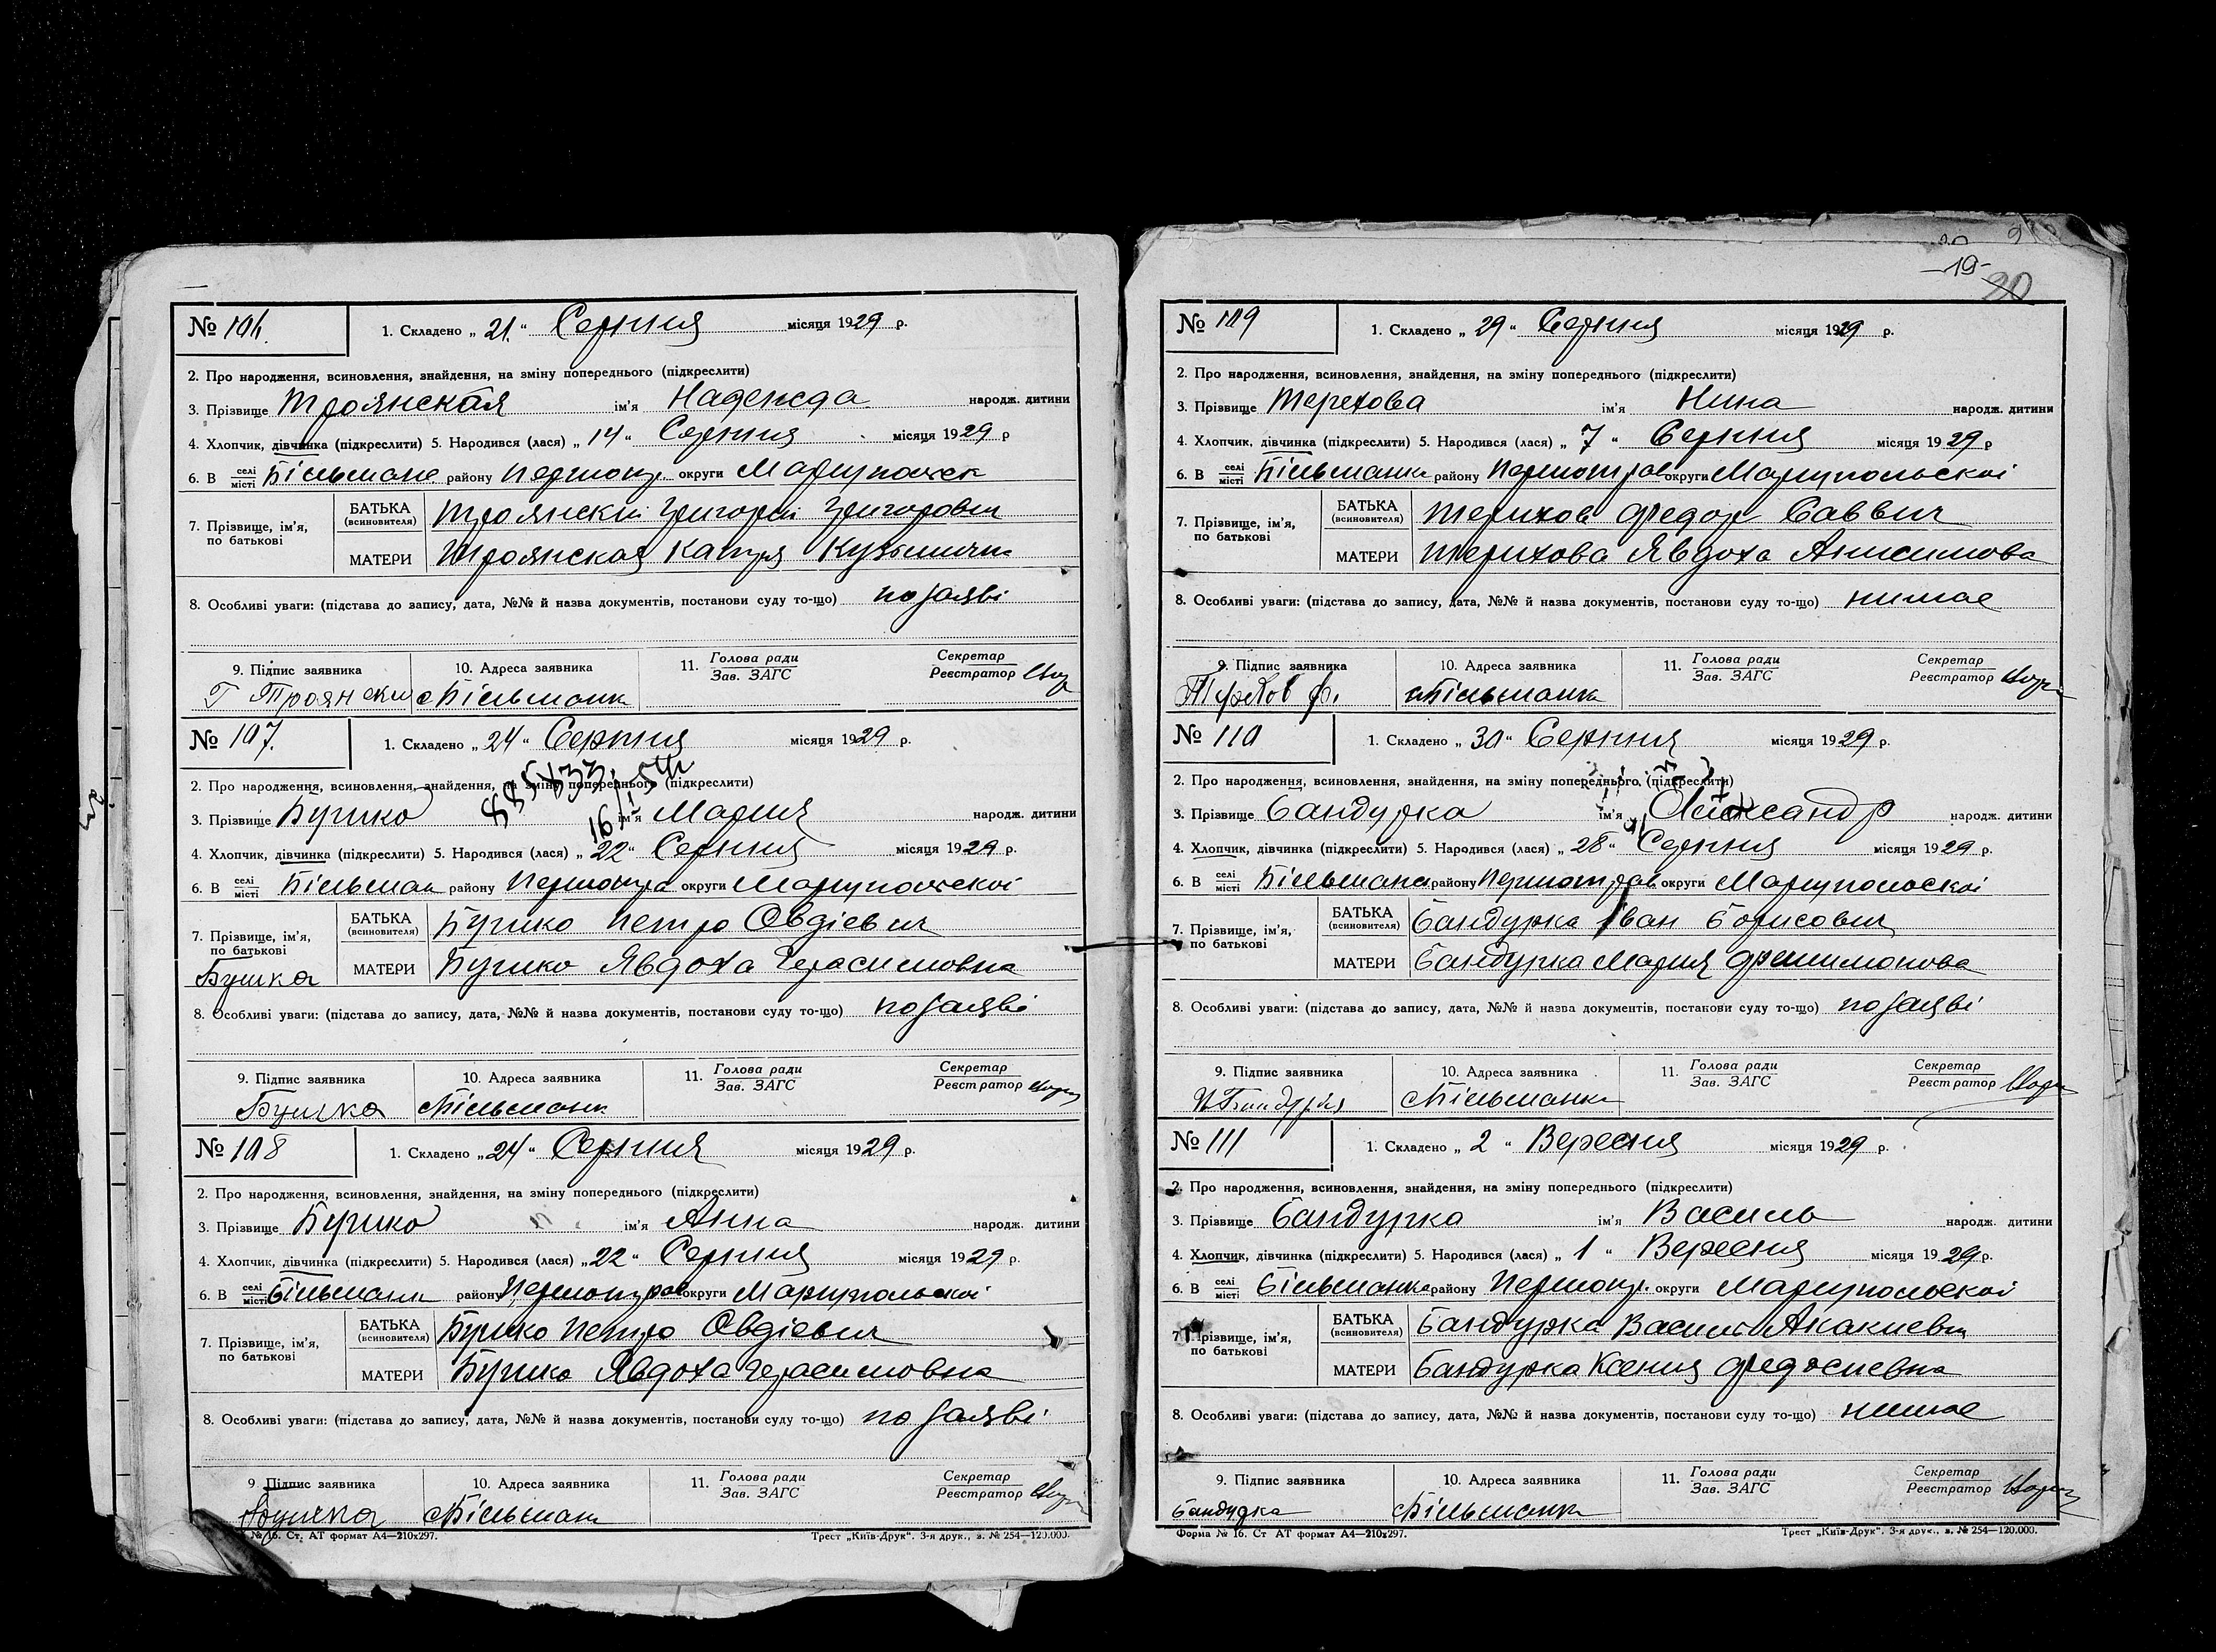 № 106. 1. Складено „ 21. “ Серпня місяця 1929 р.
2. Про народження, всиновлення, знайдення, на зміну попереднього (підкреслити)
3. Прізвище Троянская ім’я Надежда народж. дитини
4. Хлопчик, дівчинка (підкреслити) 5. Народився (лася) „ 14 “ Серпня місяця 1929 р
6. В селі місті Більмане району Першотр. округи Маріупольск
7. Прізвище, ім’я, по батькові
БАТЬКА (всиновителя) Троянскій Григорій Григорович
МАТЕРИ Троянская Катря Кузьминична
8. Особливі уваги: (підстава до запису, дата, №№ й назва документів, постанови суду то-що) по заяві
9. Підпис заявника 10. Адреса заявника 11. Голова ради Зав. ЗАГС Секретар Реєстратор
Г Троянски с Більманка
№ 107. 1. Складено „ 24 “ Серпня місяця 1929 р.
2. Про народження, всиновлення, знайдення, на зміну попереднього (підкреслити)
3. Прізвище Бушко ім’я Мария народж. дитини
4. Хлопчик, дівчинка (підкреслити) 5. Народився (лася) „ 22 “ Серпня місяця 1929 р.
6. В селі місті Більман району Першотра округи Маріупольскоі
7. Прізвище, ім’я, по батькові
БАТЬКА (всиновителя) Бушко Петро Овдіевич
МАТЕРИ Бушко Явдоха Герасимовна
Бушка
8. Особливі уваги: (підстава до запису, дата, №№ й назва документів, постанови суду то-що) по заяві
9. Підпис заявника 10. Адреса заявника 11. Голова ради Зав. ЗАГС Секретар Реєстратор
Бушка с Більманк
№ 108 1. Складено „ 24 “ Серпня місяця 1929 р.
2. Про народження, всиновлення, знайдення, на зміну попереднього (підкреслити)
3. Прізвище Бушко ім’я Анна народж. дитини
4. Хлопчик, дівчинка (підкреслити) 5. Народився (лася) „ 22 “ Серпня місяця 1929 р.
6. В селі місті Більманк району Першотрав округи Маріупольскоі
7. Прізвище, ім’я, по батькові
БАТЬКА (всиновителя) Бушко Петро Овдіевич
МАТЕРИ Бушко Явдоха Герасимовна
8. Особливі уваги: (підстава до запису, дата, №№ й назва документів, постанови суду то-що) по заяві
9. Підпис заявника 10. Адреса заявника 11. Голова ради Зав. ЗАГС Секретар Реєстратор
Бушка с Більманк
№ 16. Ст. АТ формат А4—210х297. Трест „Київ-Друк“. 3-я друк., з. № 254—120.000.
—19—
20
№ 109 1. Складено „ 29 “ Серпня місяця 1929 р.
2. Про народження, всиновлення, знайдення, на зміну попереднього (підкреслити)
3. Прізвище Терехова ім’я Нина народж. дитини
4. Хлопчик, дівчинка (підкреслити) 5. Народився (лася) „ 7 “ Серпня місяця 1929 р
6. В селі місті Більманка району Першотрав округи Маріупольскоі
7. Прізвище, ім’я, по батькові
БАТЬКА (всиновителя) Терихов Федор Саввич
МАТЕРИ Терихова Явдоха Анисимова
8. Особливі уваги: (підстава до запису, дата, №№ й назва документів, постанови суду то-що) нимае
9. Підпис заявника 10. Адреса заявника 11. Голова ради Зав. ЗАГС Секретар Реєстратор
Терехов Ф. с Більманка
№ 110 1. Складено „ 30 “ Серпня місяця 1929 р.
2. Про народження, всиновлення, знайдення, на зміну попереднього (підкреслити)
3. Прізвище Бандурка ім’я Александр народж. дитини
4. Хлопчик, дівчинка (підкреслити) 5. Народився (лася) „ 28 “ Серпня місяця 1929 р.
6. В селі місті Більманка району Першотрав округи Маріупольскоі
7. Прізвище, ім’я, по батькові
БАТЬКА (всиновителя) Бандурка Іван Борисович
МАТЕРИ Бандурка Мария
8. Особливі уваги: (підстава до запису, дата, №№ й назва документів, постанови суду то-що) по заяві
9. Підпис заявника 10. Адреса заявника 11. Голова ради Зав. ЗАГС Секретар Реєстратор
с Більманка
№ 111 1. Складено „ 2 “ Вересня місяця 1929 р.
2. Про народження, всиновлення, знайдення, на зміну попереднього (підкреслити)
3. Прізвище Бандурка ім’я Василь народж. дитини
4. Хлопчик, дівчинка (підкреслити) 5. Народився (лася) „ 1 “ Вересня місяця 1929 р.
6. В селі місті Більманка району Першотр. округи Маріупольскоі
7. Прізвище, ім’я, по батькові
БАТЬКА (всиновителя) Бандурка Василь Акакиевич
МАТЕРИ Бандурка Ксения Федосиевна
8. Особливі уваги: (підстава до запису, дата, №№ й назва документів, постанови суду то-що) нимае
9. Підпис заявника 10. Адреса заявника 11. Голова ради Зав. ЗАГС Секретар Реєстратор
Бандурка с Більманка
Форма № 16. Ст АТ формат А4—210х297. Трест „Київ-Друк“. 3-я друк., з. № 254—120.000.